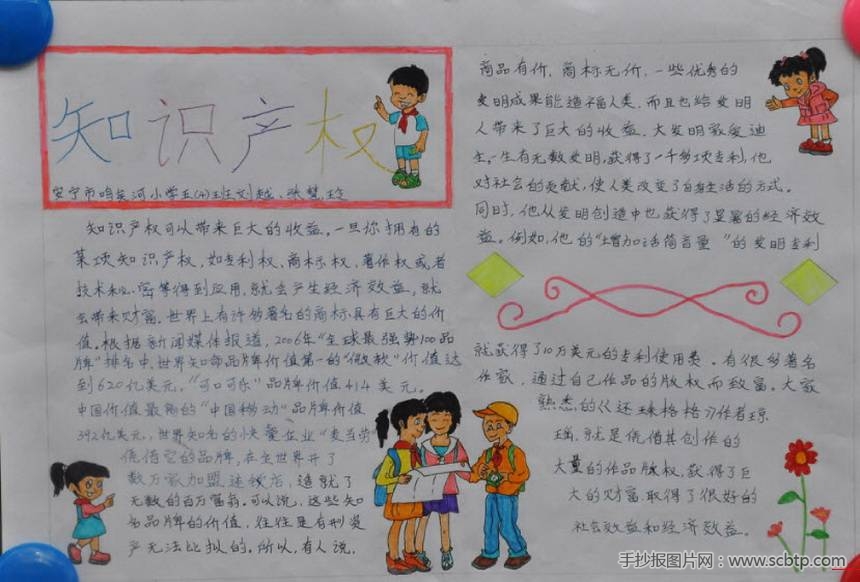 知识产权
安宁市鸣矣河小学五(4)班刘越、张慧玲
知识产权可以带来巨大的收益。一旦你拥有的
某项知识产权，如专利权、商标权，著作权或者
技术秘密等得到应用，就会产生经济效益，就
会带来财富。世界上有许多著名的商标具有巨大的价
值。根据新闻媒体报道，2006年“全球最强势100品
牌”排名中，世界知命品牌价值第一的“微软”价值达
到620亿美元，“可口可乐”品牌价值414美元。
中国价值最高的“中国移动”品牌价值
392亿美元，世界知名的快餐企业“麦当劳”
凭借它的品牌，在全世界开了
数万家加盟连锁店，造就了
无数的百万富翁。可以说，这些知
名品牌的价值，往往是有形资
产无法比拟的。所以，有人说，
商品有价，商标无价，一些优秀的
发明成果能造福人类，而且也给发明
人带来了巨大的收益。大发明家爱迪
生，一生有无数发明，获得了一千多项专利，他
对社会的贡献，使人类改变了自身生活的方式。
同时，他从发明创造中也获得了显著的经济效
益。例如，他的“增加话筒音量”的发明专利
就获得了10万美元的专利使用费。有很多著名
作家，通过自己作品的版权而致富。大家
熟悉的《还珠格格》作者琼
瑶，就是凭借其创作的
大量的作品版权，获得了巨
大的财富，取得了很好的
社会效益和经济效益。
手抄报图片网：www.scbtp.com